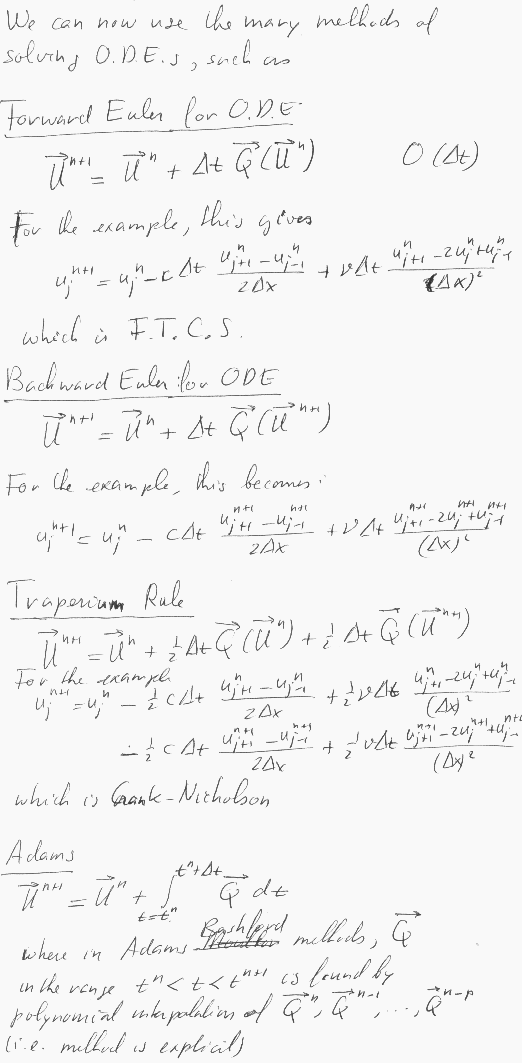 We can now use the many methods of
solving O.D.E.s, such as
Forward Euler for O.D.E.
U⃗^{n+1} = U⃗^n + Δt Q⃗(U⃗^n)    O(Δt)
For the example, this gives
u_j^{n+1} = u_j^n - cΔt (u_{j+1}^n - u_{j-1}^n)/(2Δx) + νΔt (u_{j+1}^n - 2u_j^n + u_{j-1}^n)/(Δx)²
which is F.T.C.S.
Backward Euler for ODE
U⃗^{n+1} = U⃗^n + Δt Q⃗(U⃗^{n+1})
For the example, this becomes:
u_j^{n+1} = u_j^n - cΔt (u_{j+1}^{n+1} - u_{j-1}^{n+1})/(2Δx) + νΔt (u_{j+1}^{n+1} - 2u_j^{n+1} + u_{j-1}^{n+1})/(Δx)²
Trapezium Rule
U⃗^{n+1} = U⃗^n + ½Δt Q⃗(U⃗^n) + ½Δt Q⃗(U⃗^{n+1})
For the example
u_j^{n+1} = u_j^n - ½cΔt (u_{j+1}^n - u_{j-1}^n)/(2Δx) + ½νΔt (u_{j+1}^n - 2u_j^n + u_{j-1}^n)/(Δx)²
- ½cΔt (u_{j+1}^{n+1} - u_{j-1}^{n+1})/(2Δx) + ½νΔt (u_{j+1}^{n+1} - 2u_j^{n+1} + u_{j-1}^{n+1})/(Δx)²
which is Crank-Nicholson
Adams
U⃗^{n+1} = U⃗^n + ∫_{t=t^n}^{t^n+Δt} Q⃗ dt
where in Adams Bashford methods, Q⃗
in the range t^n < t < t^{n+1} is found by
polynomial interpolation of Q⃗^n, Q⃗^{n-1}, ..., Q⃗^{n-p}
(i.e. method is explicit)